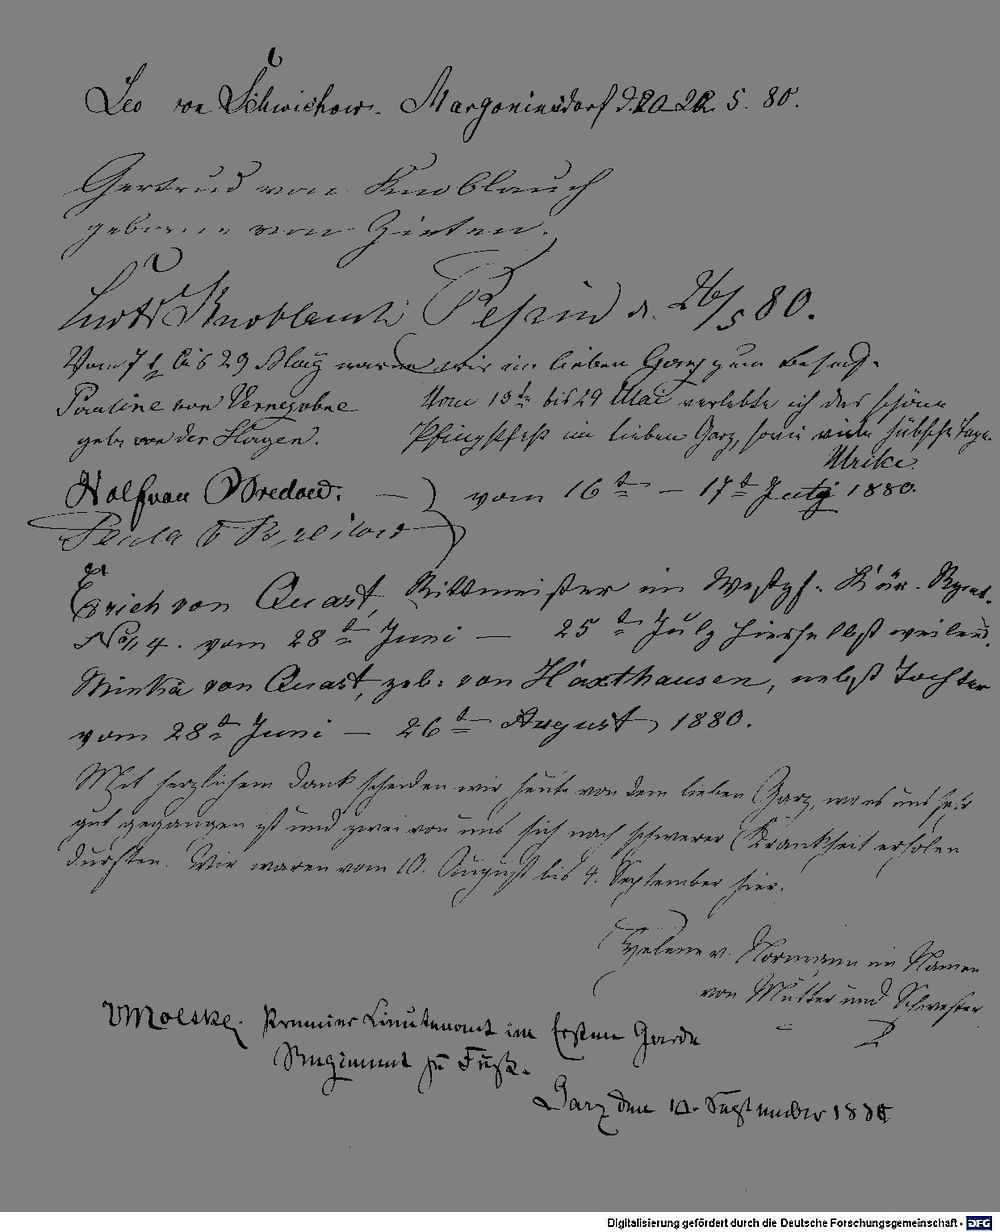 Leo von Schwichow. Margoninsdorf d. 20 22. 5. 80.
Gertrud von Knoblauch
geborene von Zieten.
Kurt v Knoblauch Pessin d. 26/5 80.
Vom 7t bis 29 May waren wir im lieben Garz zum Besuch.
Pauline von Vernezobre
geb. von der Hagen.
Vom 13t bis 29 Mai verlebte ich das schöne
Pfingstfest im lieben Garz, sowie viele hübsche Tage.
Ulrike
Wolf von Bredow. — vom 16t — 17t July 1880.
v Bredow
Erich von Quast, Rittmeister im Westph. Kür. Rgmt.
No 4. vom 28t Juni — 25t July hierselbst weilend.
von Quast, geb: von Haxthausen, nebst Tochter
vom 28t Juni — 26t August 1880.
Mit herzlichem Dank scheiden wir heute von dem lieben Garz, wo es uns sehr
gut gegangen ist und zwei von uns sich nach schwerer Krankheit erholen
durften. Wir waren vom 10. August bis 4. September hier.
Helene v. Normann im Namen
von Mutter und Schwester
vMolstke. Premier Lieutenant im Ersten Garde
Regiment zu Fuß.
Garz den 12. September
Digitalisierung gefördert durch die Deutsche Forschungsgemeinschaft - DFG